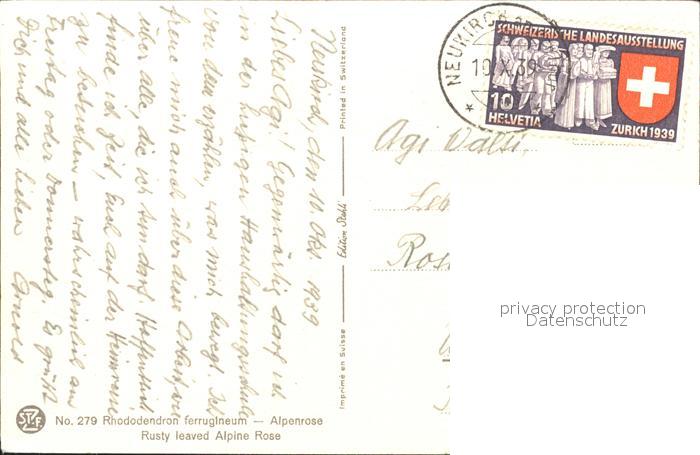 Neukirch, den 10. Okt. 1939
Liebes Agi! Gegenwärtig darf ich
in der hiesigen Haushaltungsschule
von dem erzählen, was mich bewegt. Ich
freue mich auch über diese Arbeit, wie
über alle, die ich tun darf. Hoffentlich
finde ich Zeit, Euch auf der Heimreise
zu – wahrscheinlich am
Freitag oder Donnerstag. Es grüßt
Dich und alle Lieben Arnold
Imprimé en Suisse Edition Stehli Printed in Switzerland
STZF
No. 279 Rhododendron ferrugineum — Alpenrose
Rusty leaved Alpine Rose
NEUKIRCH
10.X.39
SCHWEIZERISCHE LANDESAUSSTELLUNG
10
HELVETIA
ZURICH 1939
Agi Walti,
privacy protection
Datenschutz